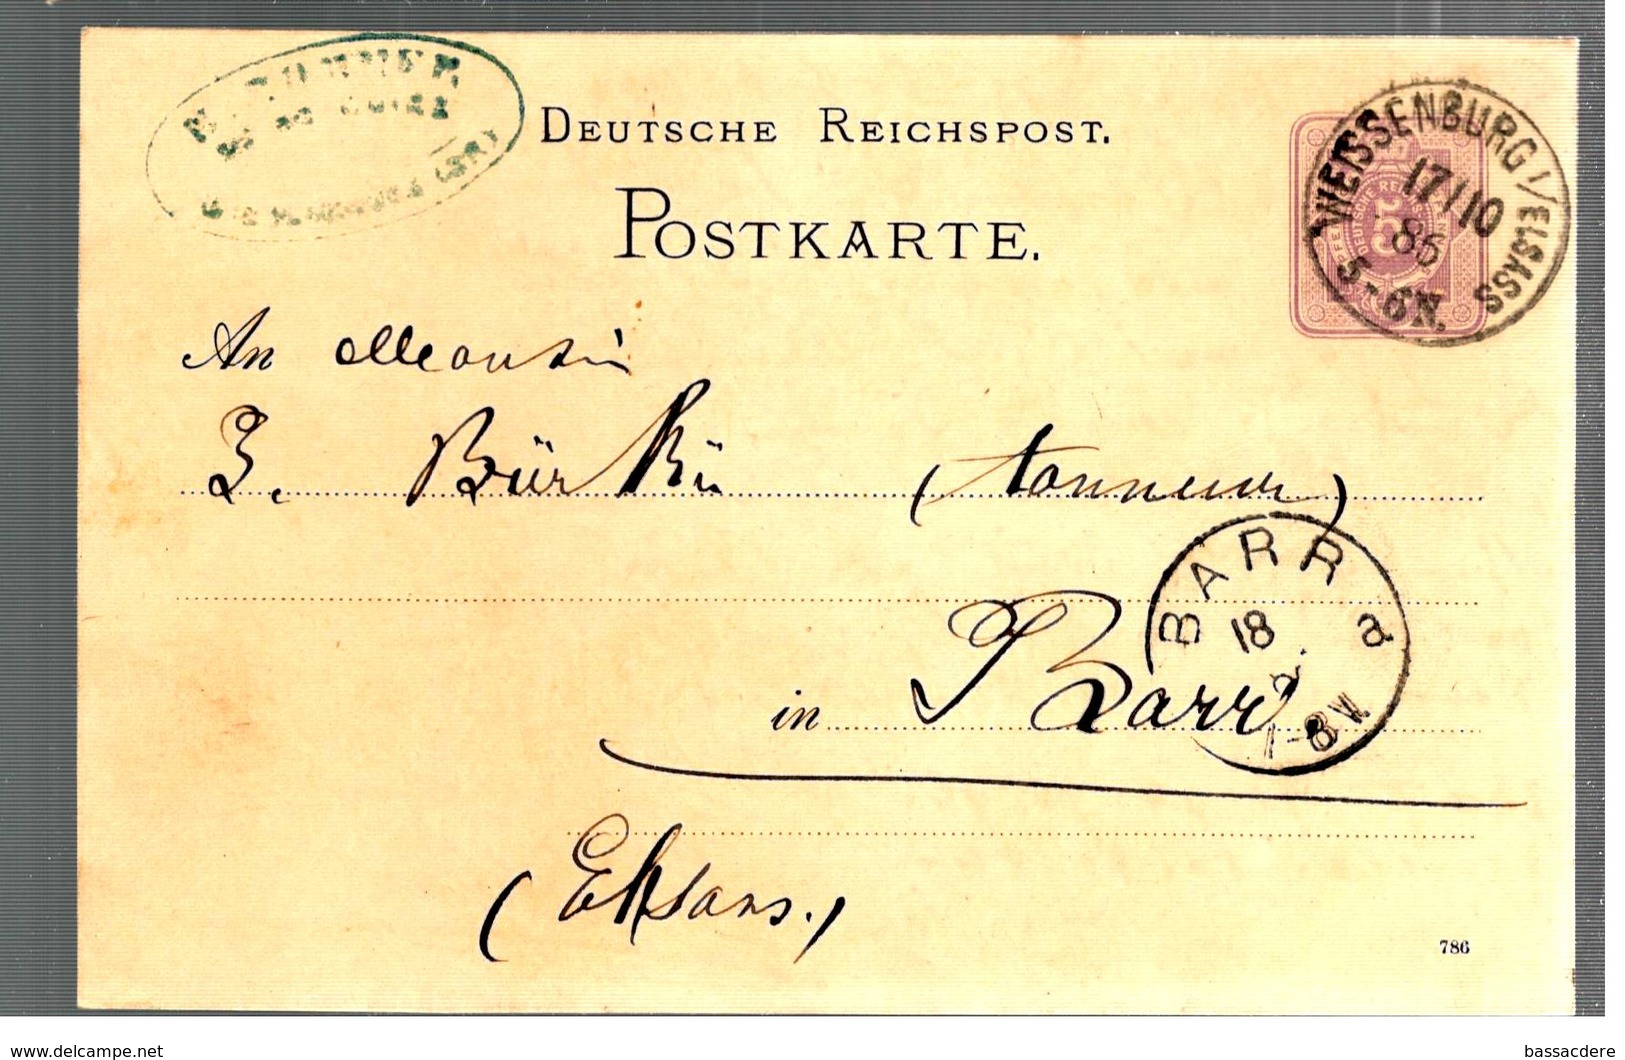 DEUTSCHE REICHSPOST.
POSTKARTE.
WEISSENBURG I/ELSASS
17/10
86
5-6N.
5
An Monsieur
J. Bürkü (tanneur)
BARR a
18
-8V.
in Barr
(Elsass.)
786
www.delcampe.net
bassacdere